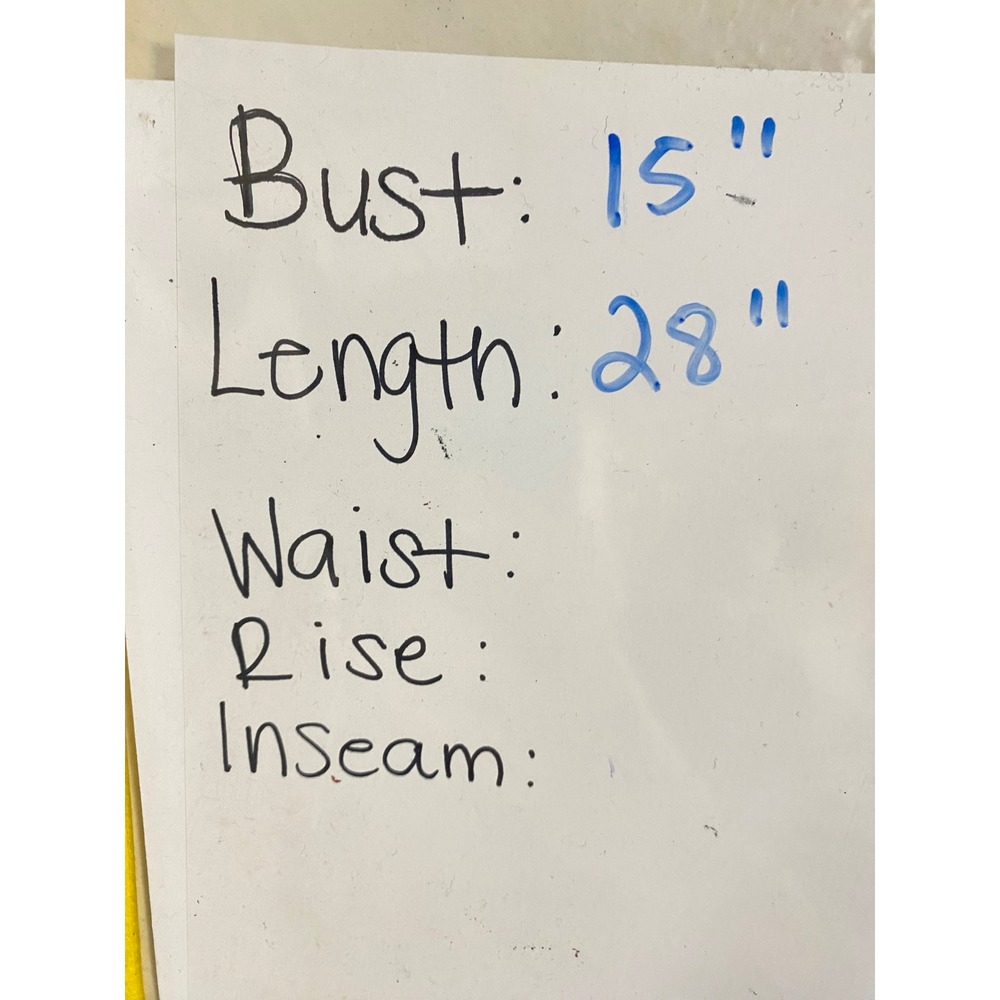 Bust: 15"
Length: 28"
Waist:
Rise:
Inseam: